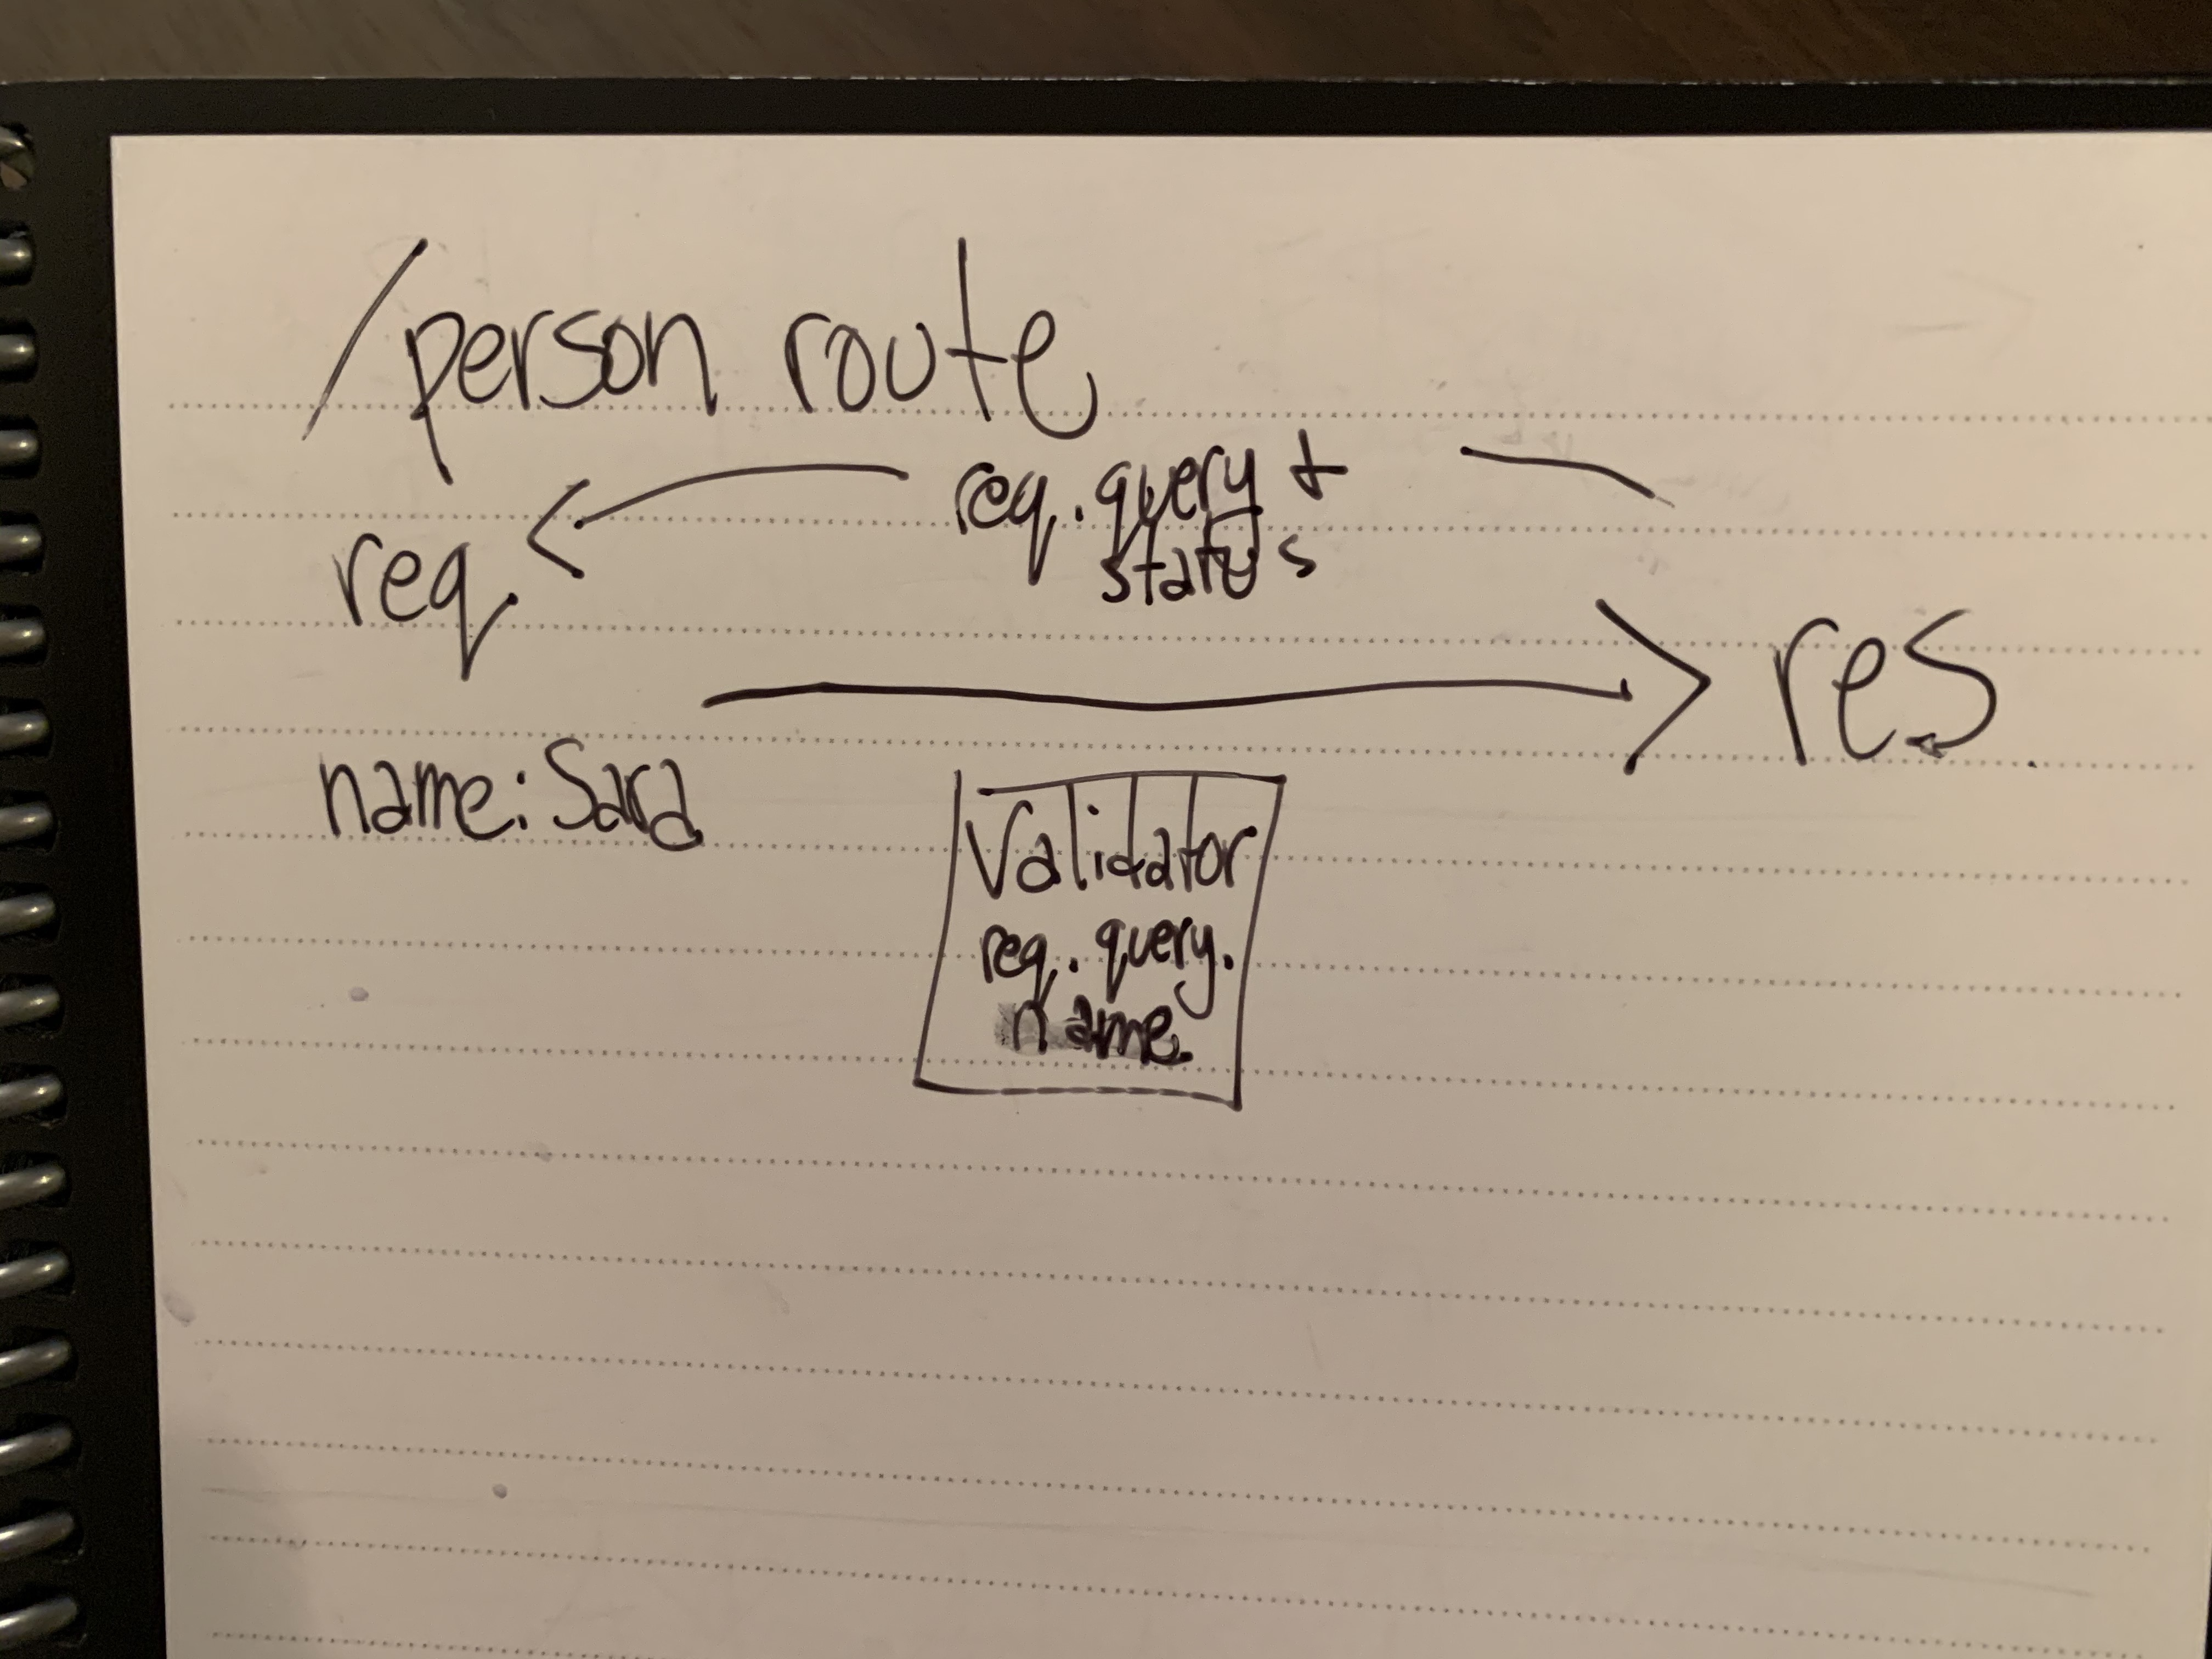 /person route
req.query +
status
req.
res.
name: Sara
Validator
req.query.
name